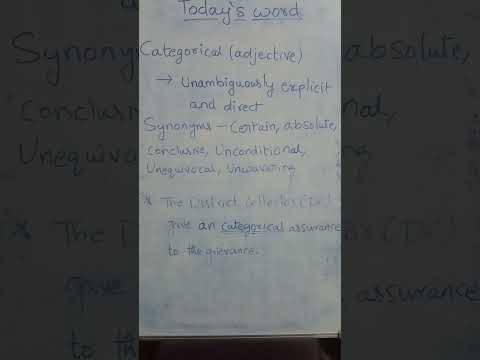 Today's word
Categorical (adjective)
→ Unambiguously explicit
and direct
Synonyms - Certain, absolute,
Conclusive, Unconditional,
Unequivocal, Unwavering
* The District Collector
gave an categorical assurance
to the grievance.